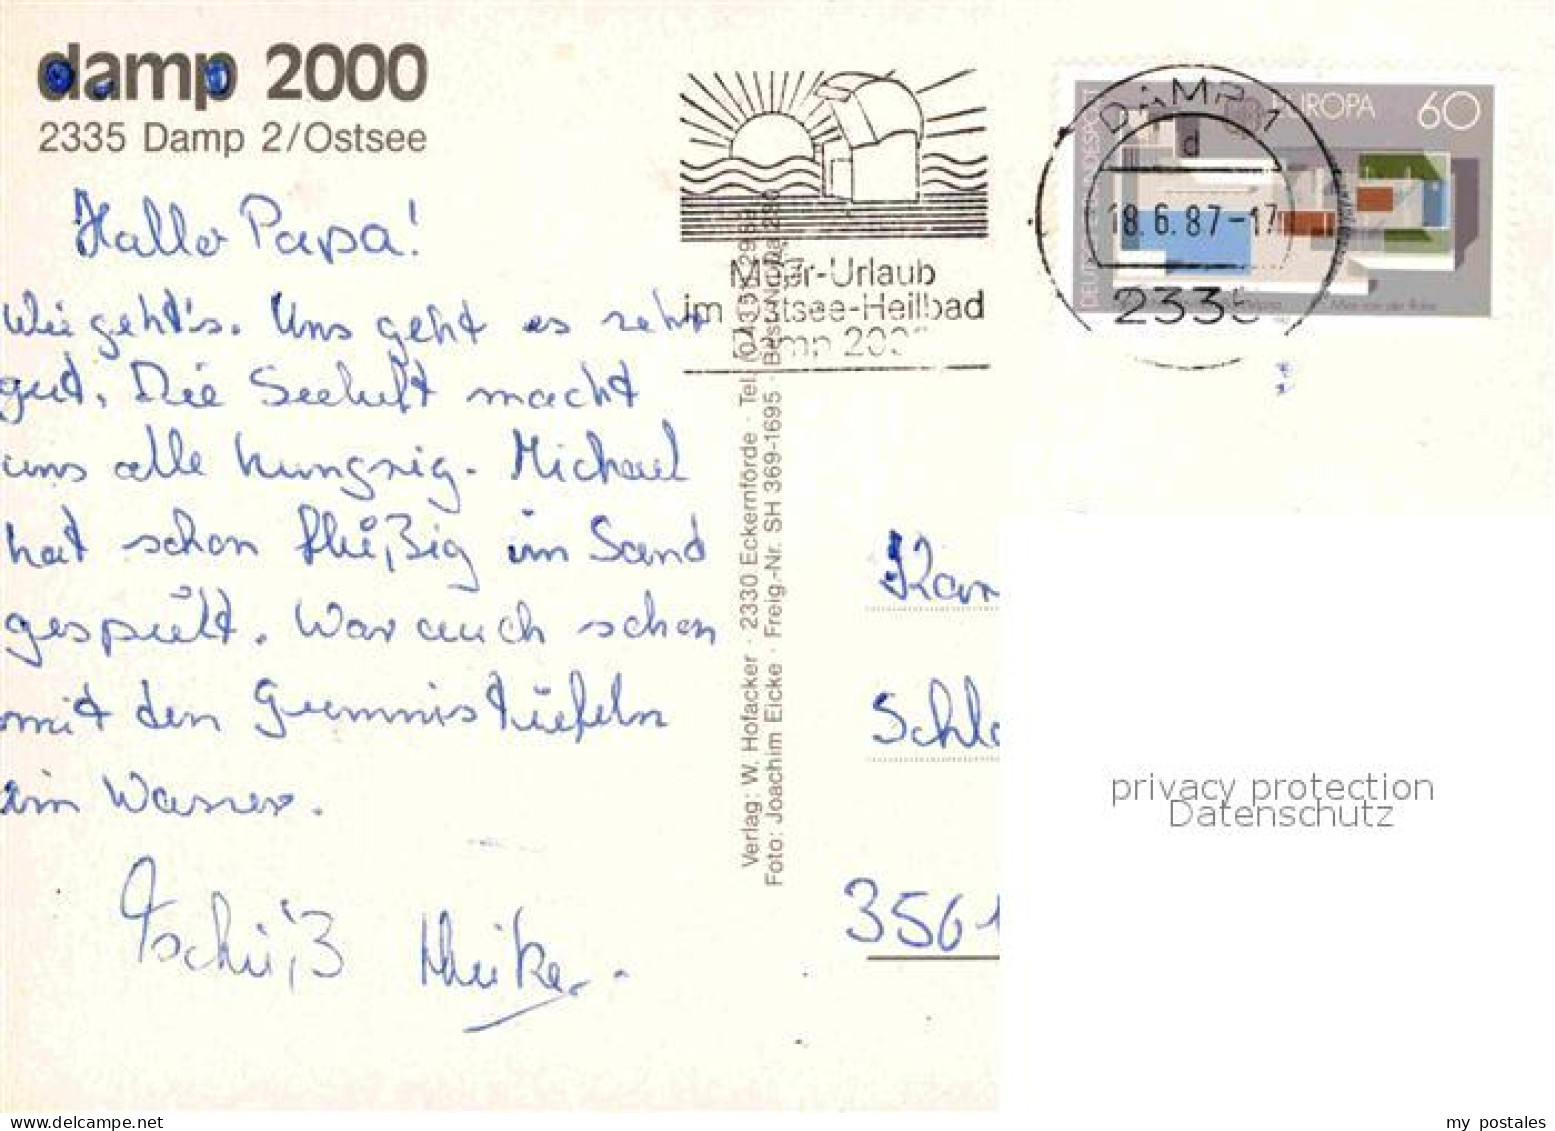 damp 2000
2335 Damp 2/Ostsee
Hallo Papa!
Wie geht's. Uns geht es sehr
gut. Die Seeluft macht
uns alle hungrig. Michael
hat schon flüßig im Sand
gespült. War auch schon
mit den Gummistüfeln
im Wasser.
Tschüß Heike.
Verlag: W. Hofacker · 2330 Eckernförde · Tel.
Foto: Joachim Eicke · Freig.-Nr. SH 369-1695 · Best.-Nr. Da 280
Meer-Urlaub
im Ostsee-Heilbad
Damp 2000
DAMP 1
d
18.6.87-17
2335
DEUTSCHE BUNDESPOST
EUROPA 60
Mies van der Rohe
Kar
Schlo
3561
privacy protection
Datenschutz
my postales